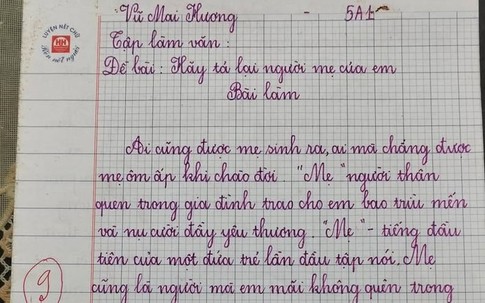 Vũ Mai Hương - 5A1
LUYỆN NÉT CHỮ
Rèn nết người
Tập làm văn :
Đề bài : Hãy tả lại người mẹ của em
Bài làm
Ai cũng được mẹ sinh ra, ai mà chẳng được
mẹ ôm ấp khi chào đời. "Mẹ" người thân
quen trong gia đình trao cho em bao trìu mến
và nụ cười đầy yêu thương. "Mẹ" - tiếng đầu
tiên của một đứa trẻ lần đầu tập nói. Mẹ
cũng là người mà em mãi không quên trong
9